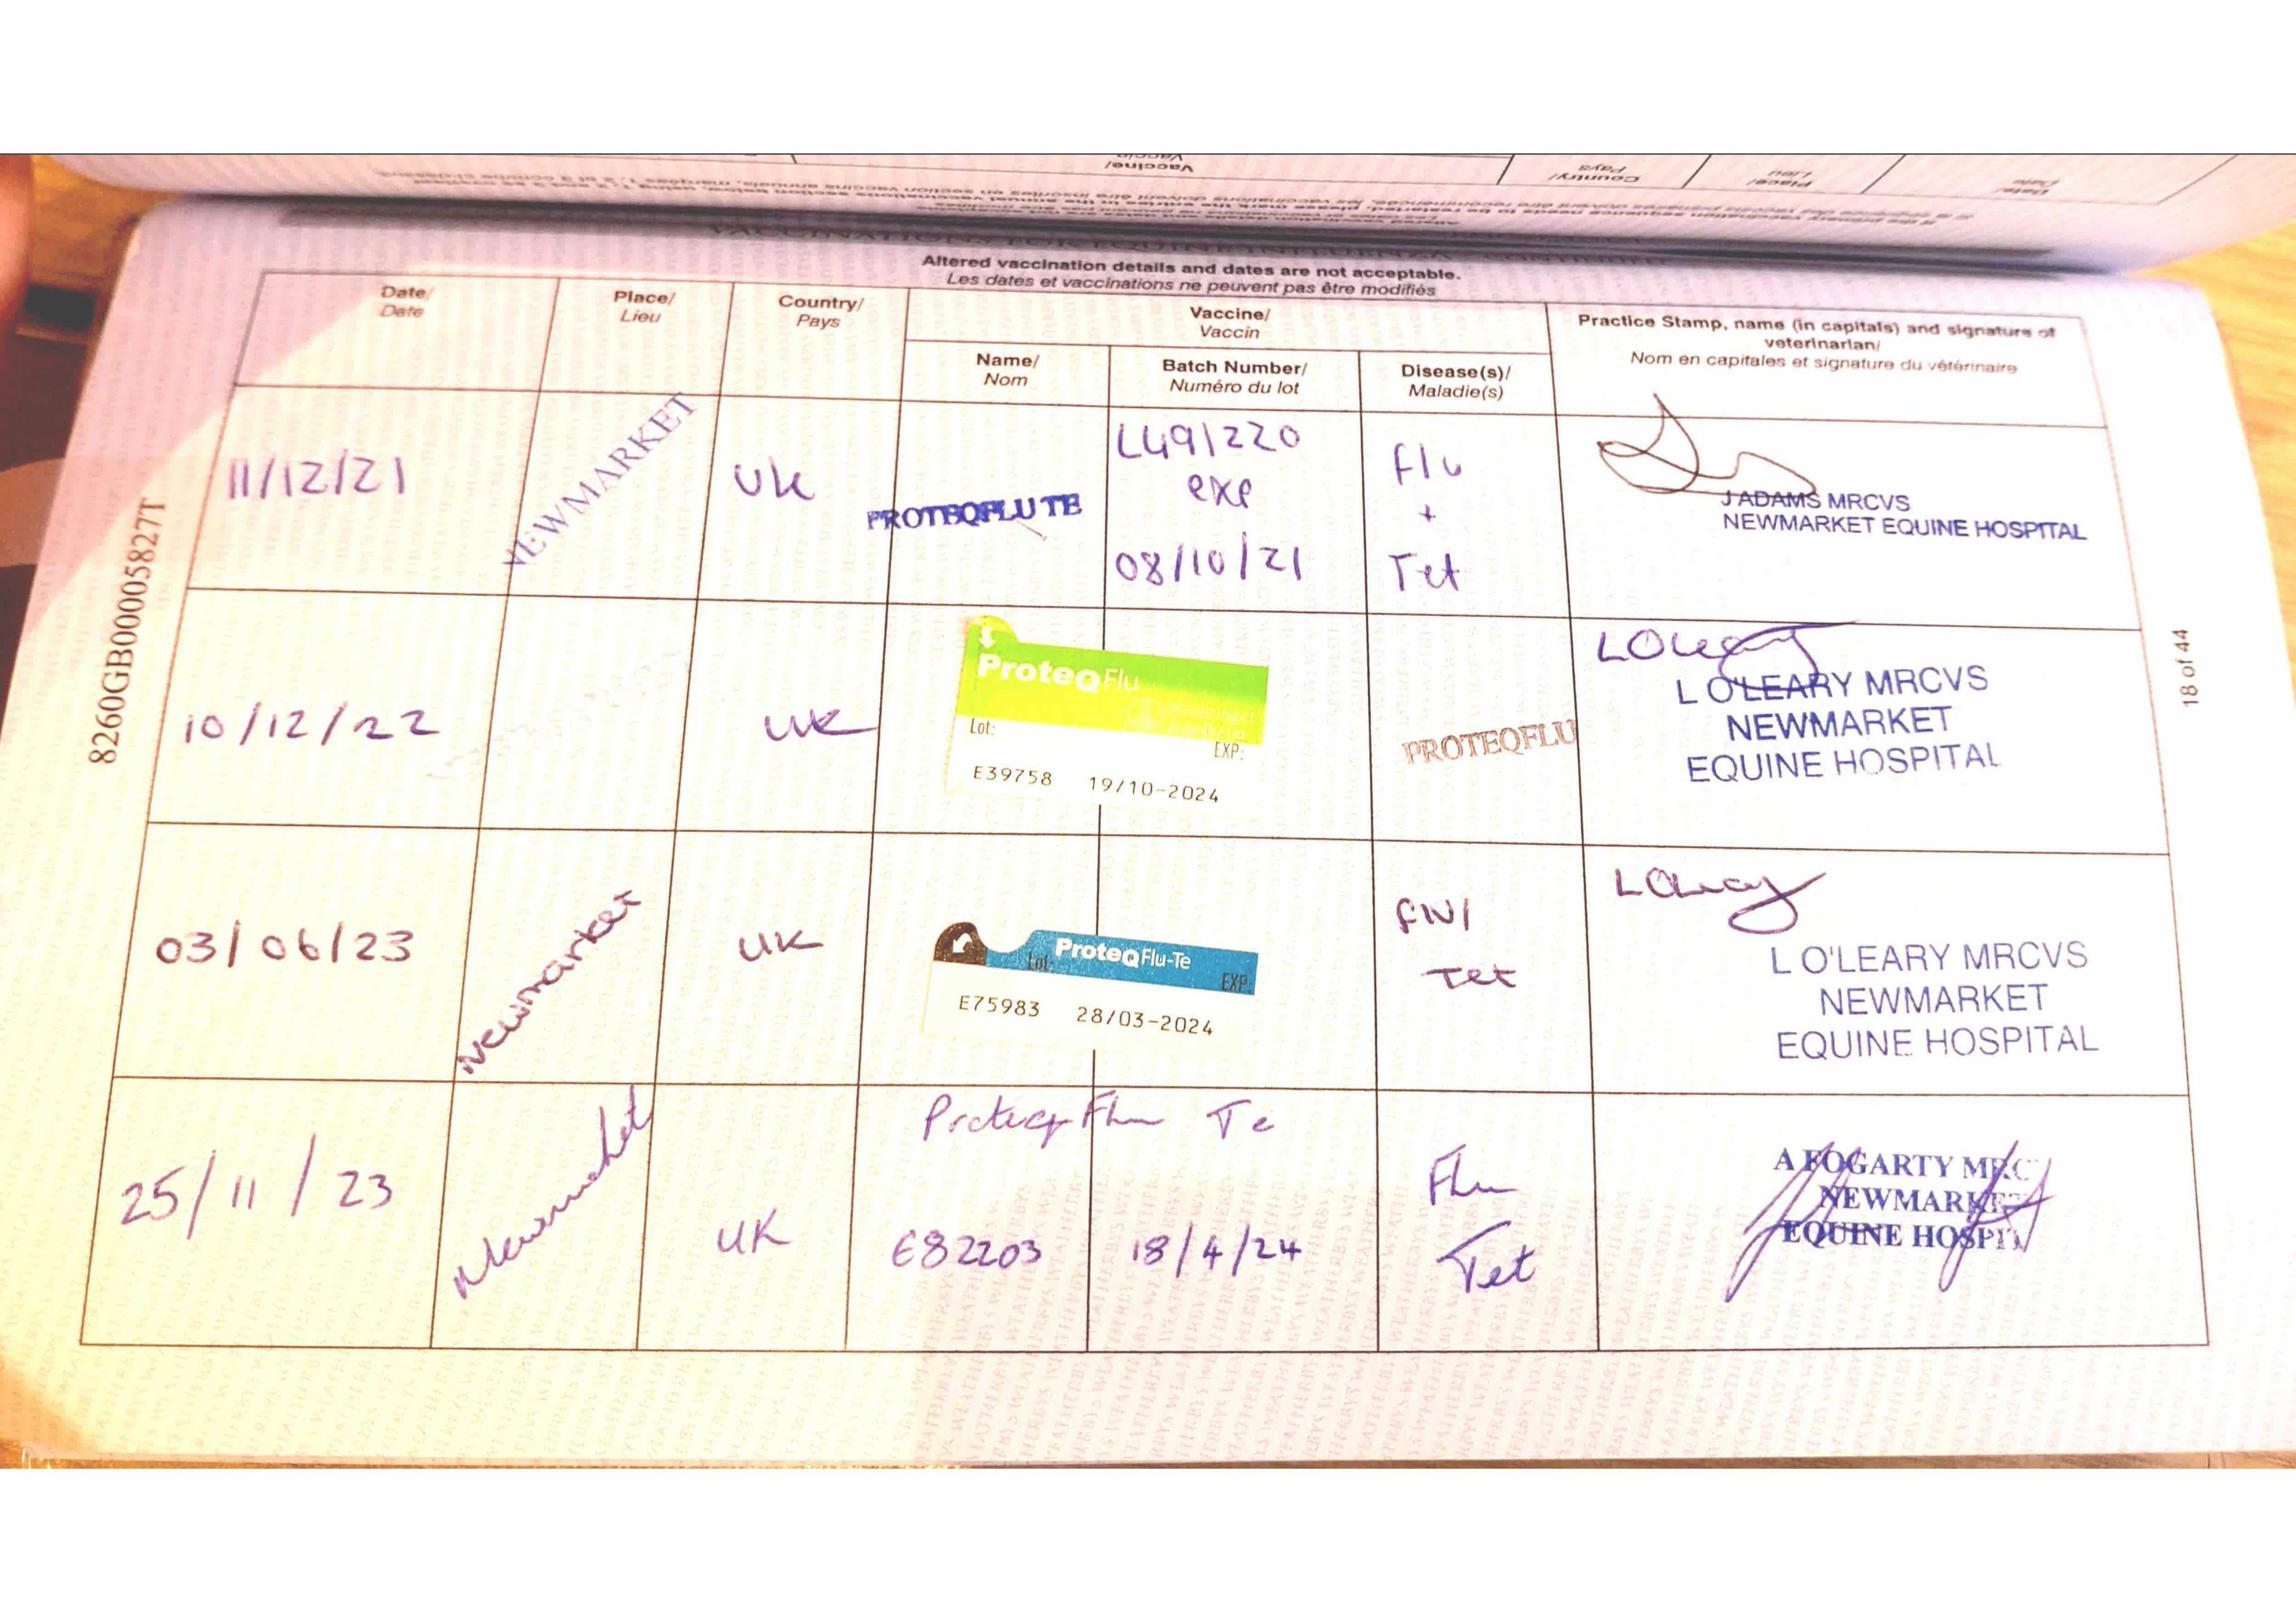 Vaccine/
Vaccin
Country/
Pays
Place/
Lieu
Date/
Date
VACCINATIONS FOR EQUINE INFLUENZA
Altered vaccination details and dates are not acceptable.
Les dates et vaccinations ne peuvent pas être modifiés
Date/
Date
Place/
Lieu
Country/
Pays
Vaccine/
Vaccin
Name/
Nom
Batch Number/
Numéro du lot
Disease(s)/
Maladie(s)
Practice Stamp, name (in capitals) and signature of
veterinarian/
Nom en capitales et signature du vétérinaire
11/12/21
NEWMARKET
UK
PROTEQFLU TE
L491220
exp
08/10/21
Flu
+
Tet
J ADAMS MRCVS
NEWMARKET EQUINE HOSPITAL
10/12/22
UK
ProteqFlu
Lot:
EXP:
E39758 19/10-2024
PROTEQFLU
LOleary
L O'LEARY MRCVS
NEWMARKET
EQUINE HOSPITAL
03/06/23
Newmarket
UK
ProteqFlu-Te
Lot:
EXP:
E75983 28/03-2024
Tet
LOleary
L O'LEARY MRCVS
NEWMARKET
EQUINE HOSPITAL
25/11/23
Newmarket
UK
Proteq Flu Te
E82203 18/4/24
Flu
Tet
A FOGARTY MRC
NEWMARKET
EQUINE HOSPIT
8260GB00005827T
18 of 44